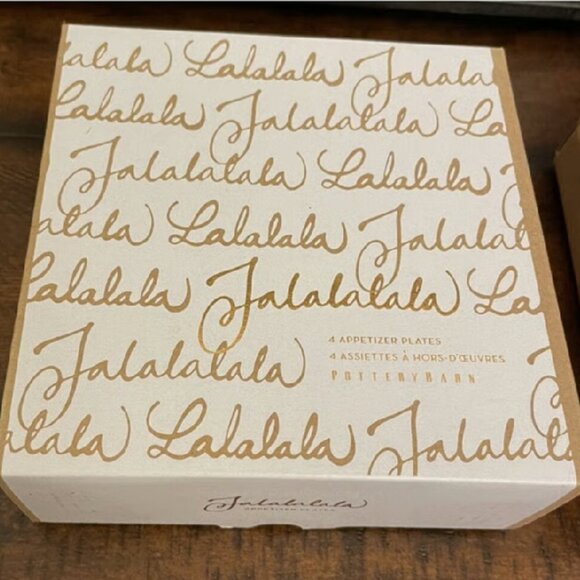 alala Lalalala Falala
Lalalala Falalalala La
Falalalala Lalalala
alala Lalalala Falal
Lalalala Falalalala La
4 APPETIZER PLATES
4 ASSIETTES À HORS-D'ŒUVRES
POTTERY BARN
Falalalala
alala Lalalala Falalal
Falalalala
APPETIZER PLATES